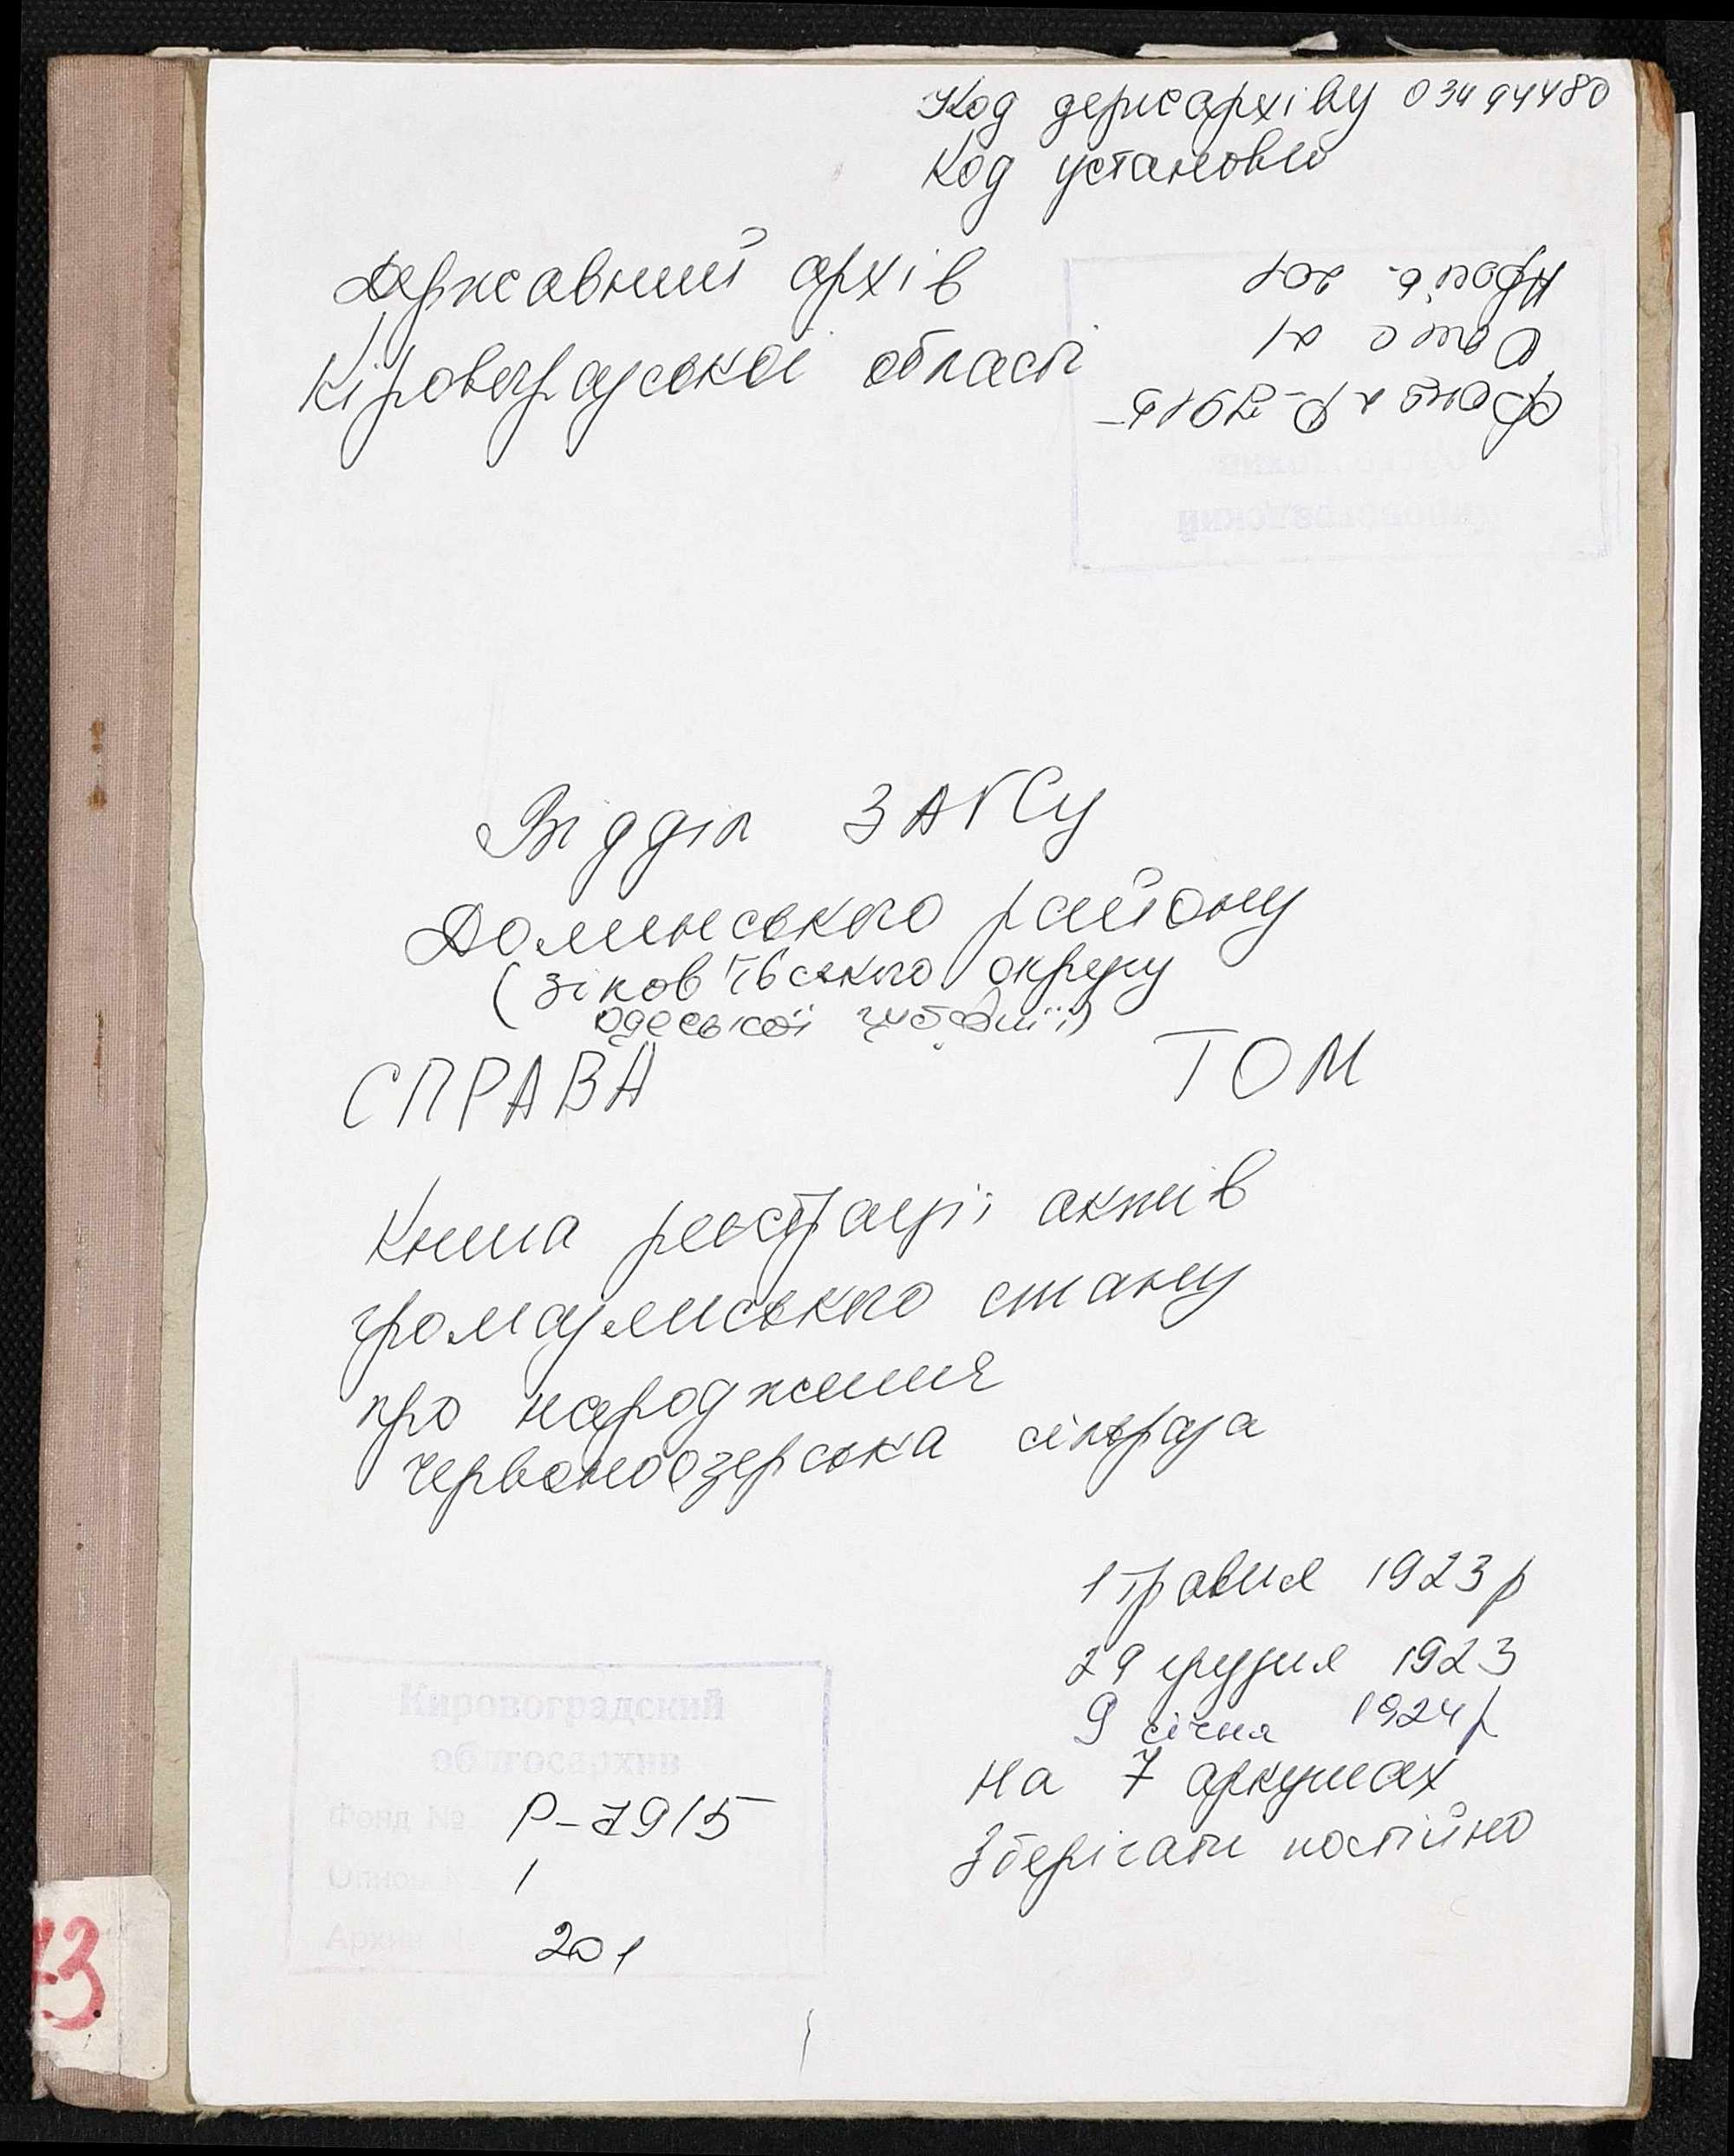 Код держархіву 03494480
Код установи
Державний архів
Кіровоградської області
Фонд Р-7915
Опис 1
Арх. 201
Кировоградский
Відділ ЗАГСу
Долинського району
(Зінов'ївського округу
Одеської губернії)
СПРАВА ТОМ
Книга реєстрації актів
громадянського стану
про народження
Червоноозерська сільрада
1 травня 1923 р
29 грудня 1923
9 січня 1924 р
на 7 аркушах
Зберігати постійно
Кировоградский
облгосархив
Фонд № Р-7915
Опись № 1
Архив № 201